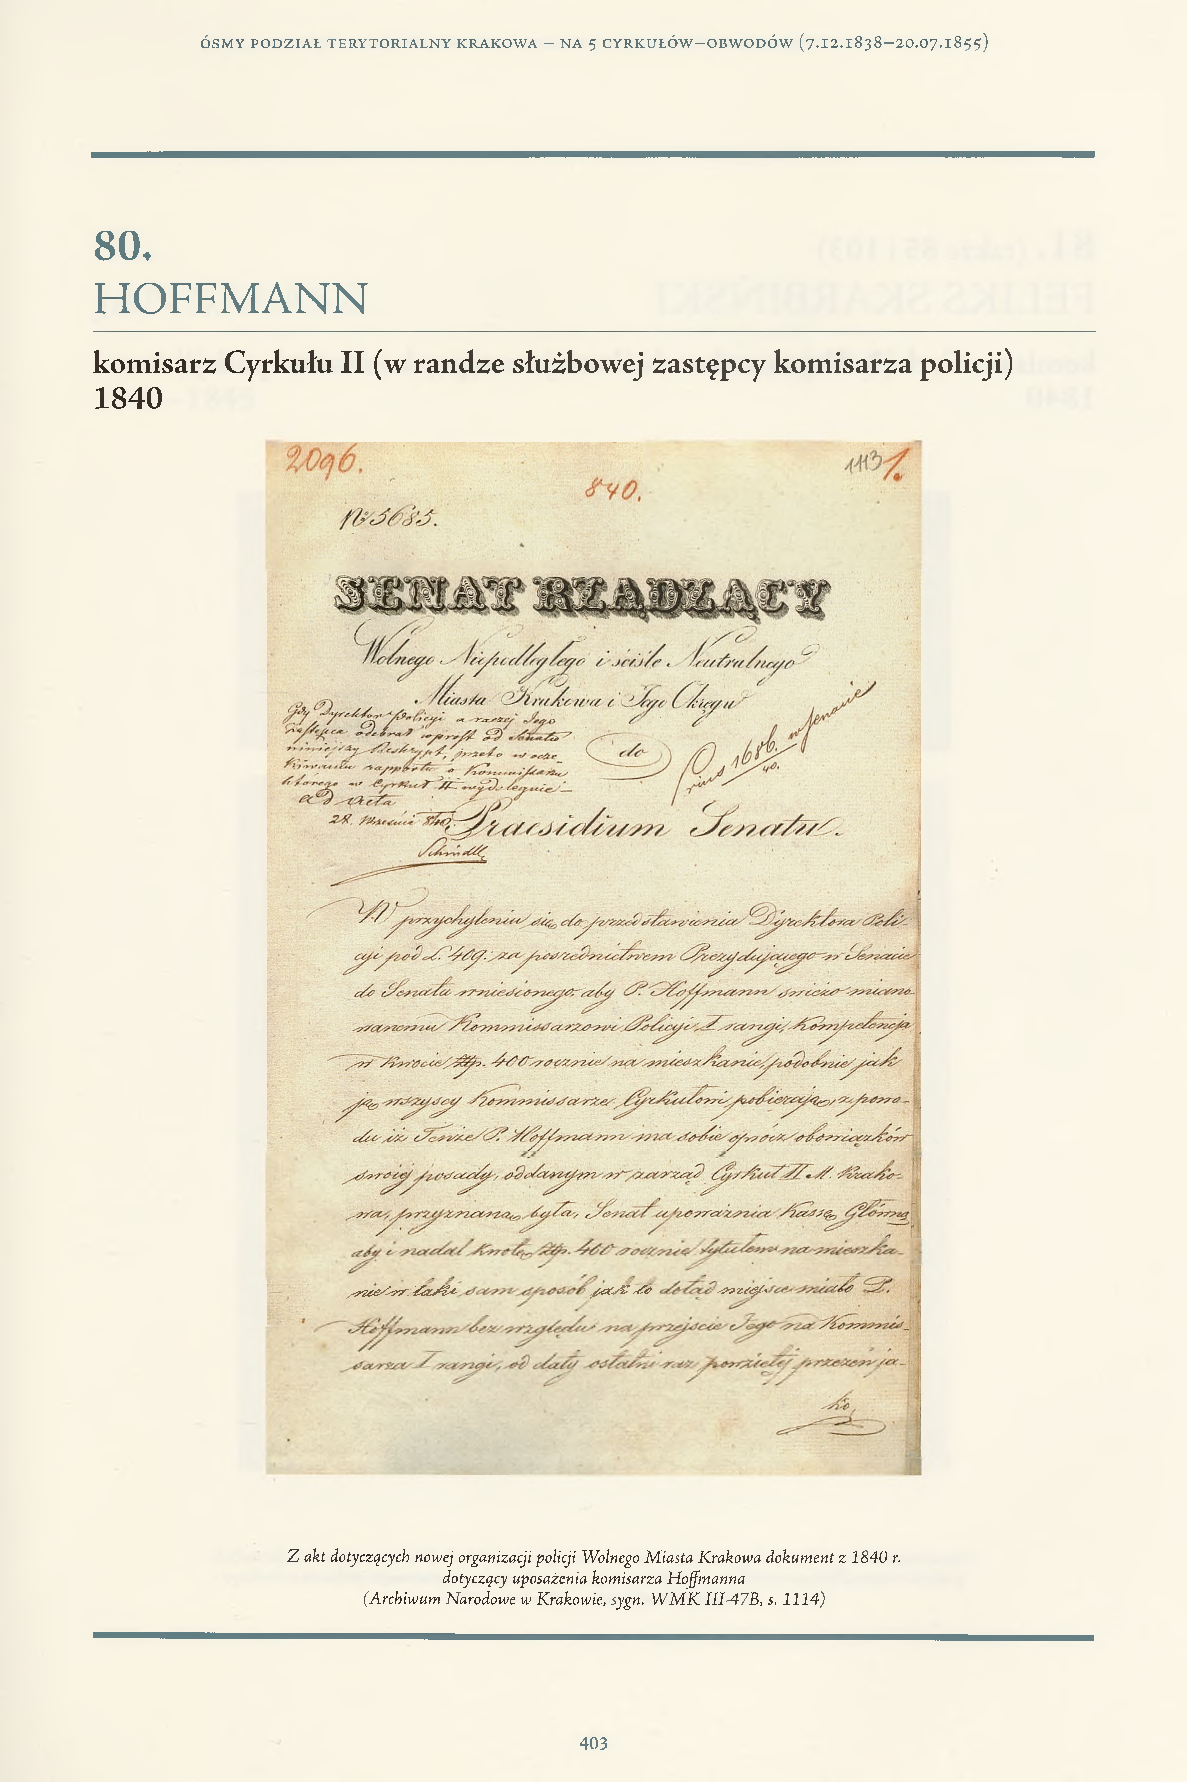 ÓSMY PODZIAŁ TERYTORIALNY KRAKOWA – NA 5 CYRKUŁÓW–OBWODÓW (7.12.1838–20.07.1855)
80.
HOFFMANN
komisarz Cyrkułu II (w randze służbowej zastępcy komisarza policji)
1840
2096.
1113 1.
840.
No 5685.
SENAT RZĄDZĄCY
Wolnego Niepodległego i ściśle Neutralnego
Miasta Krakowa i Jego Okręgu
Gdy Dyrektor Policyi a raczej Jego
zastępca odebrał wprost od Senatu
niniejszy Reskrypt, przeto w ocze-
kiwaniu rapportu o Kommissarzu
którego w Cyrkuł II wydelegnie –
ad acta
28. Września 840.
do
1686. w Senacie
40.
Praesidium Senatu.
W przychyleniu się do przedstawienia Dyrektora Poli-
cyi pod L. 409. za pośrednictwem Prezydującego w Senacie
do Senatu wniesionego, aby P. Hoffmann świeżo miano-
wanemu Kommissarzowi Policyi I rangi, kompetencja
w kwocie Złp. 400 rocznie na mieszkanie, podobnie jak
ją wszyscy Kommissarze Cyrkułowi pobierają, z powo-
du iż Tenże P. Hoffmann ma sobie oprócz obowiązków
swoiéj posady, oddanym w zarząd Cyrkuł II M. Krako-
wa, przyznaną była, Senat upoważnia Kassę Główną
aby i nadal kwotę Złp. 400 rocznie tytułem na mieszka-
nie w taki sam sposób jak to dotąd miejsce miało P.
Hoffmann bez względu na przejście Jego na Kommis-
sarza I rangi, od daty ostatni raz powziętéj przezeń ja-
ko
Z akt dotyczących nowej organizacji policji Wolnego Miasta Krakowa dokument z 1840 r.
dotyczący uposażenia komisarza Hoffmanna
(Archiwum Narodowe w Krakowie, sygn. WMK III-47B, s. 1114)
403